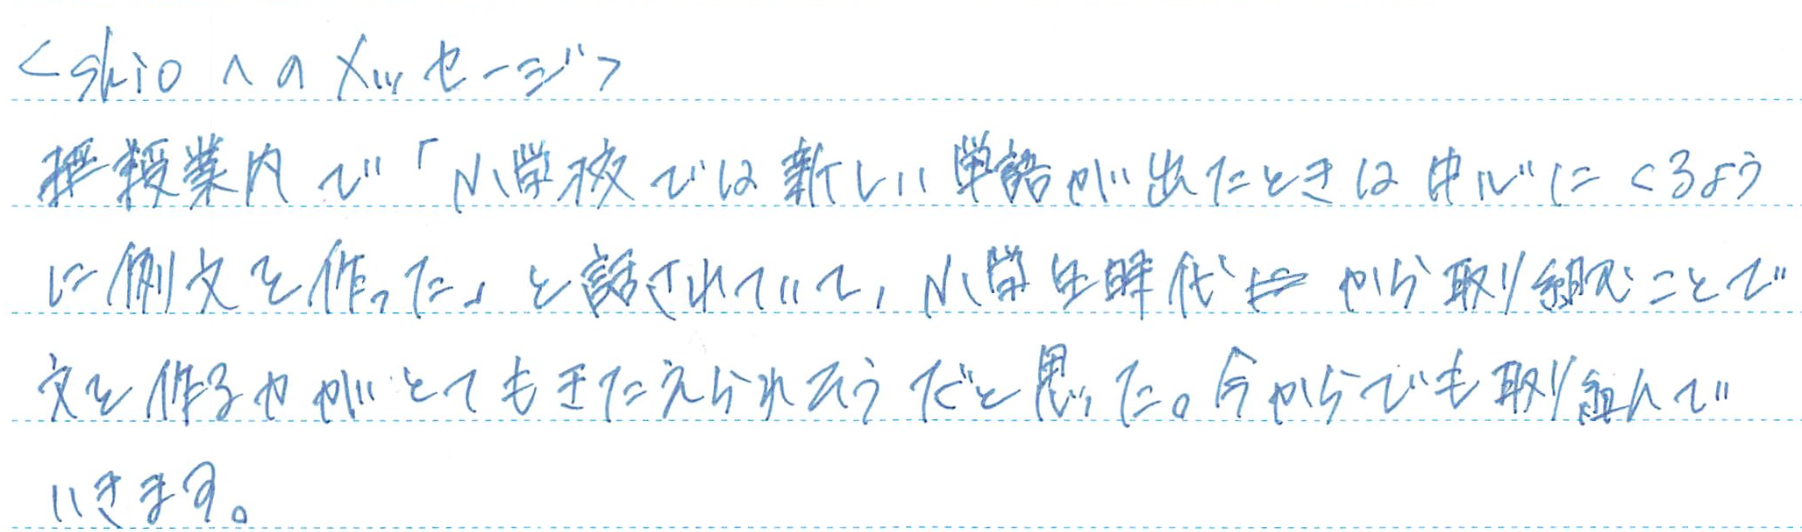 <shioへのメッセージ>
授業内で「小学校では新しい単語が出たときは中心にくるよう
に例文を作った」と話されていて、小学生時代から取り組むことで
文を作る力がとてもきたえられそうだと思った。今からでも取り組んで
いきます。